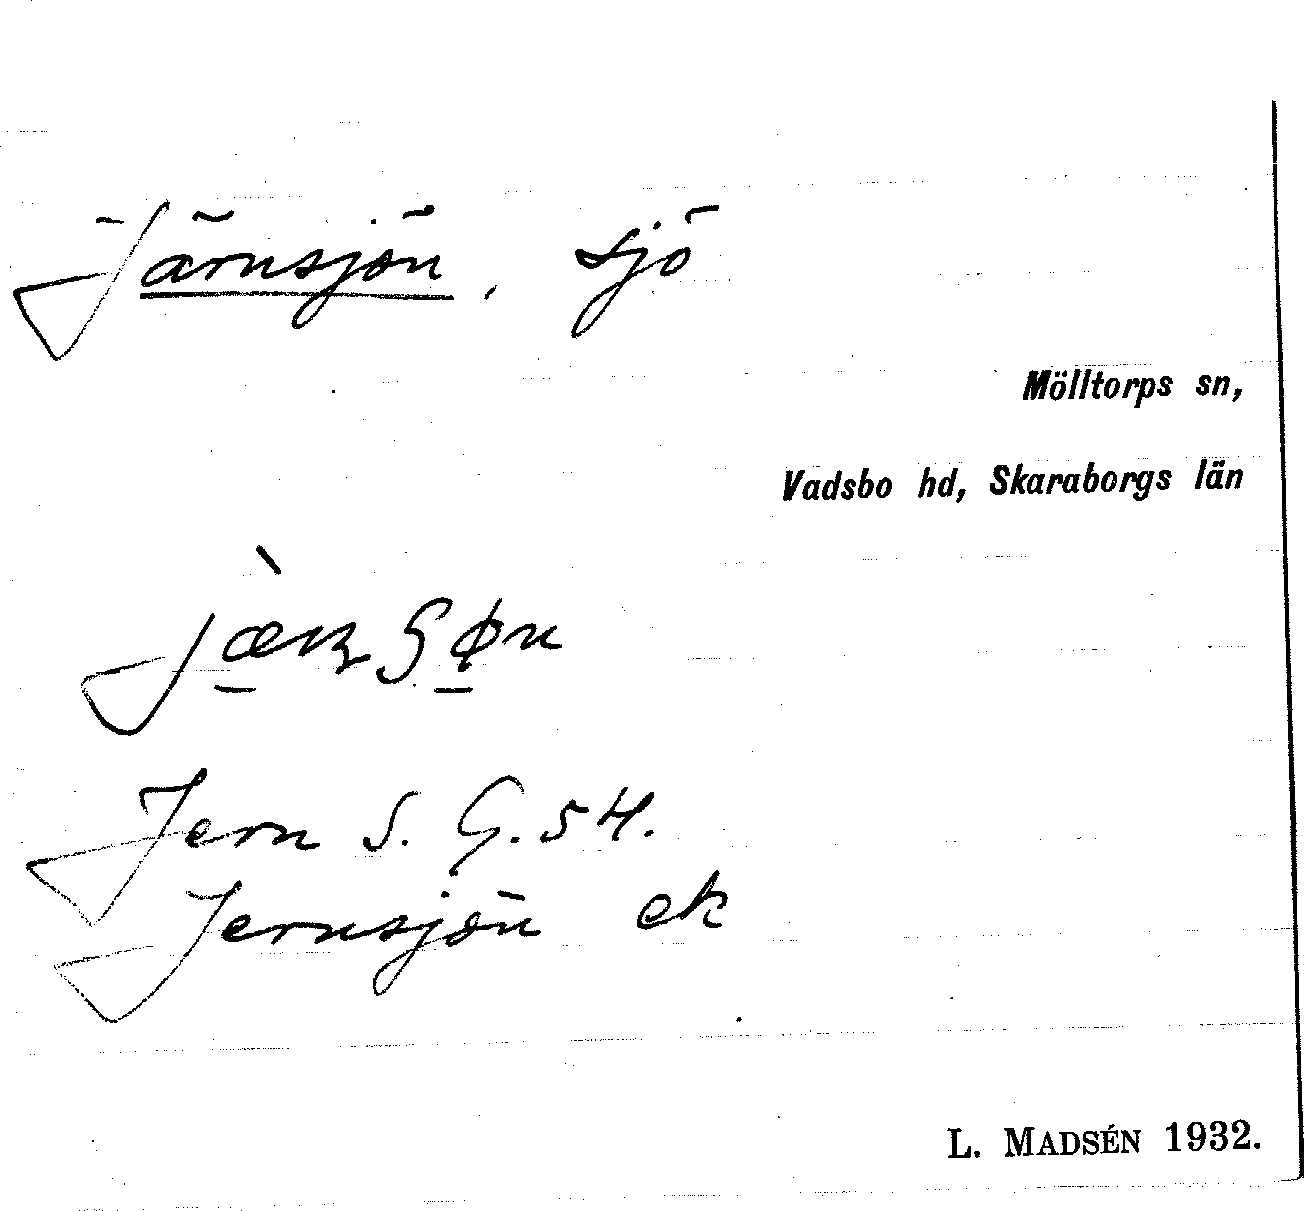 Järnsjön, sjö
Mölltorps sn,
Vadsbo hd, Skaraborgs län
Jern S. G. 54.
Jernsjön ek
L. MADSÉN 1932.